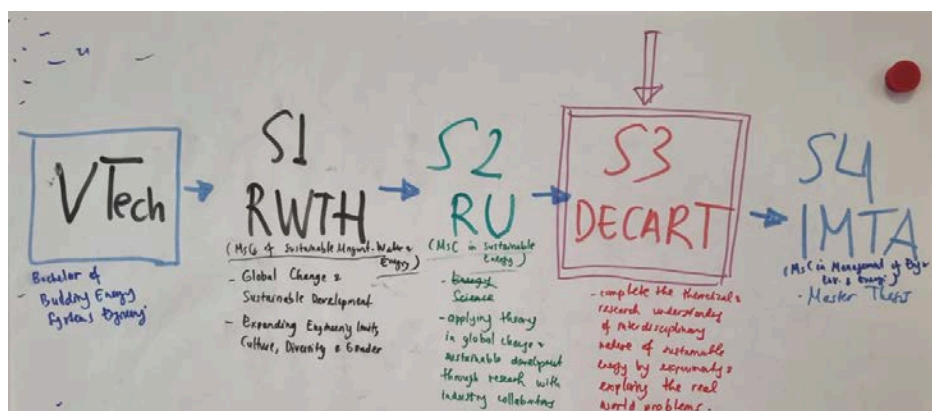 VTech
Bachelor of
Building Energy
Systems
S1
RWTH
(MSc of Sustainable Mngmt-Water &
Energy)
- Global Change &
Sustainable Development
- Expanding Engineering limits,
Culture, Diversity & Gender
S2
RU
(MSc in Sustainable
Energy)
- Energy
Science
- applying theory
in global change &
sustainable development
through research with
industry
S3
DECART
- complete the theoretical &
research understanding
of interdisciplinary
nature of sustainable
energy by experiments &
exploring the real
world problems.
S4
IMTA
(MSc in Management of
& Energy)
- Master Thesis